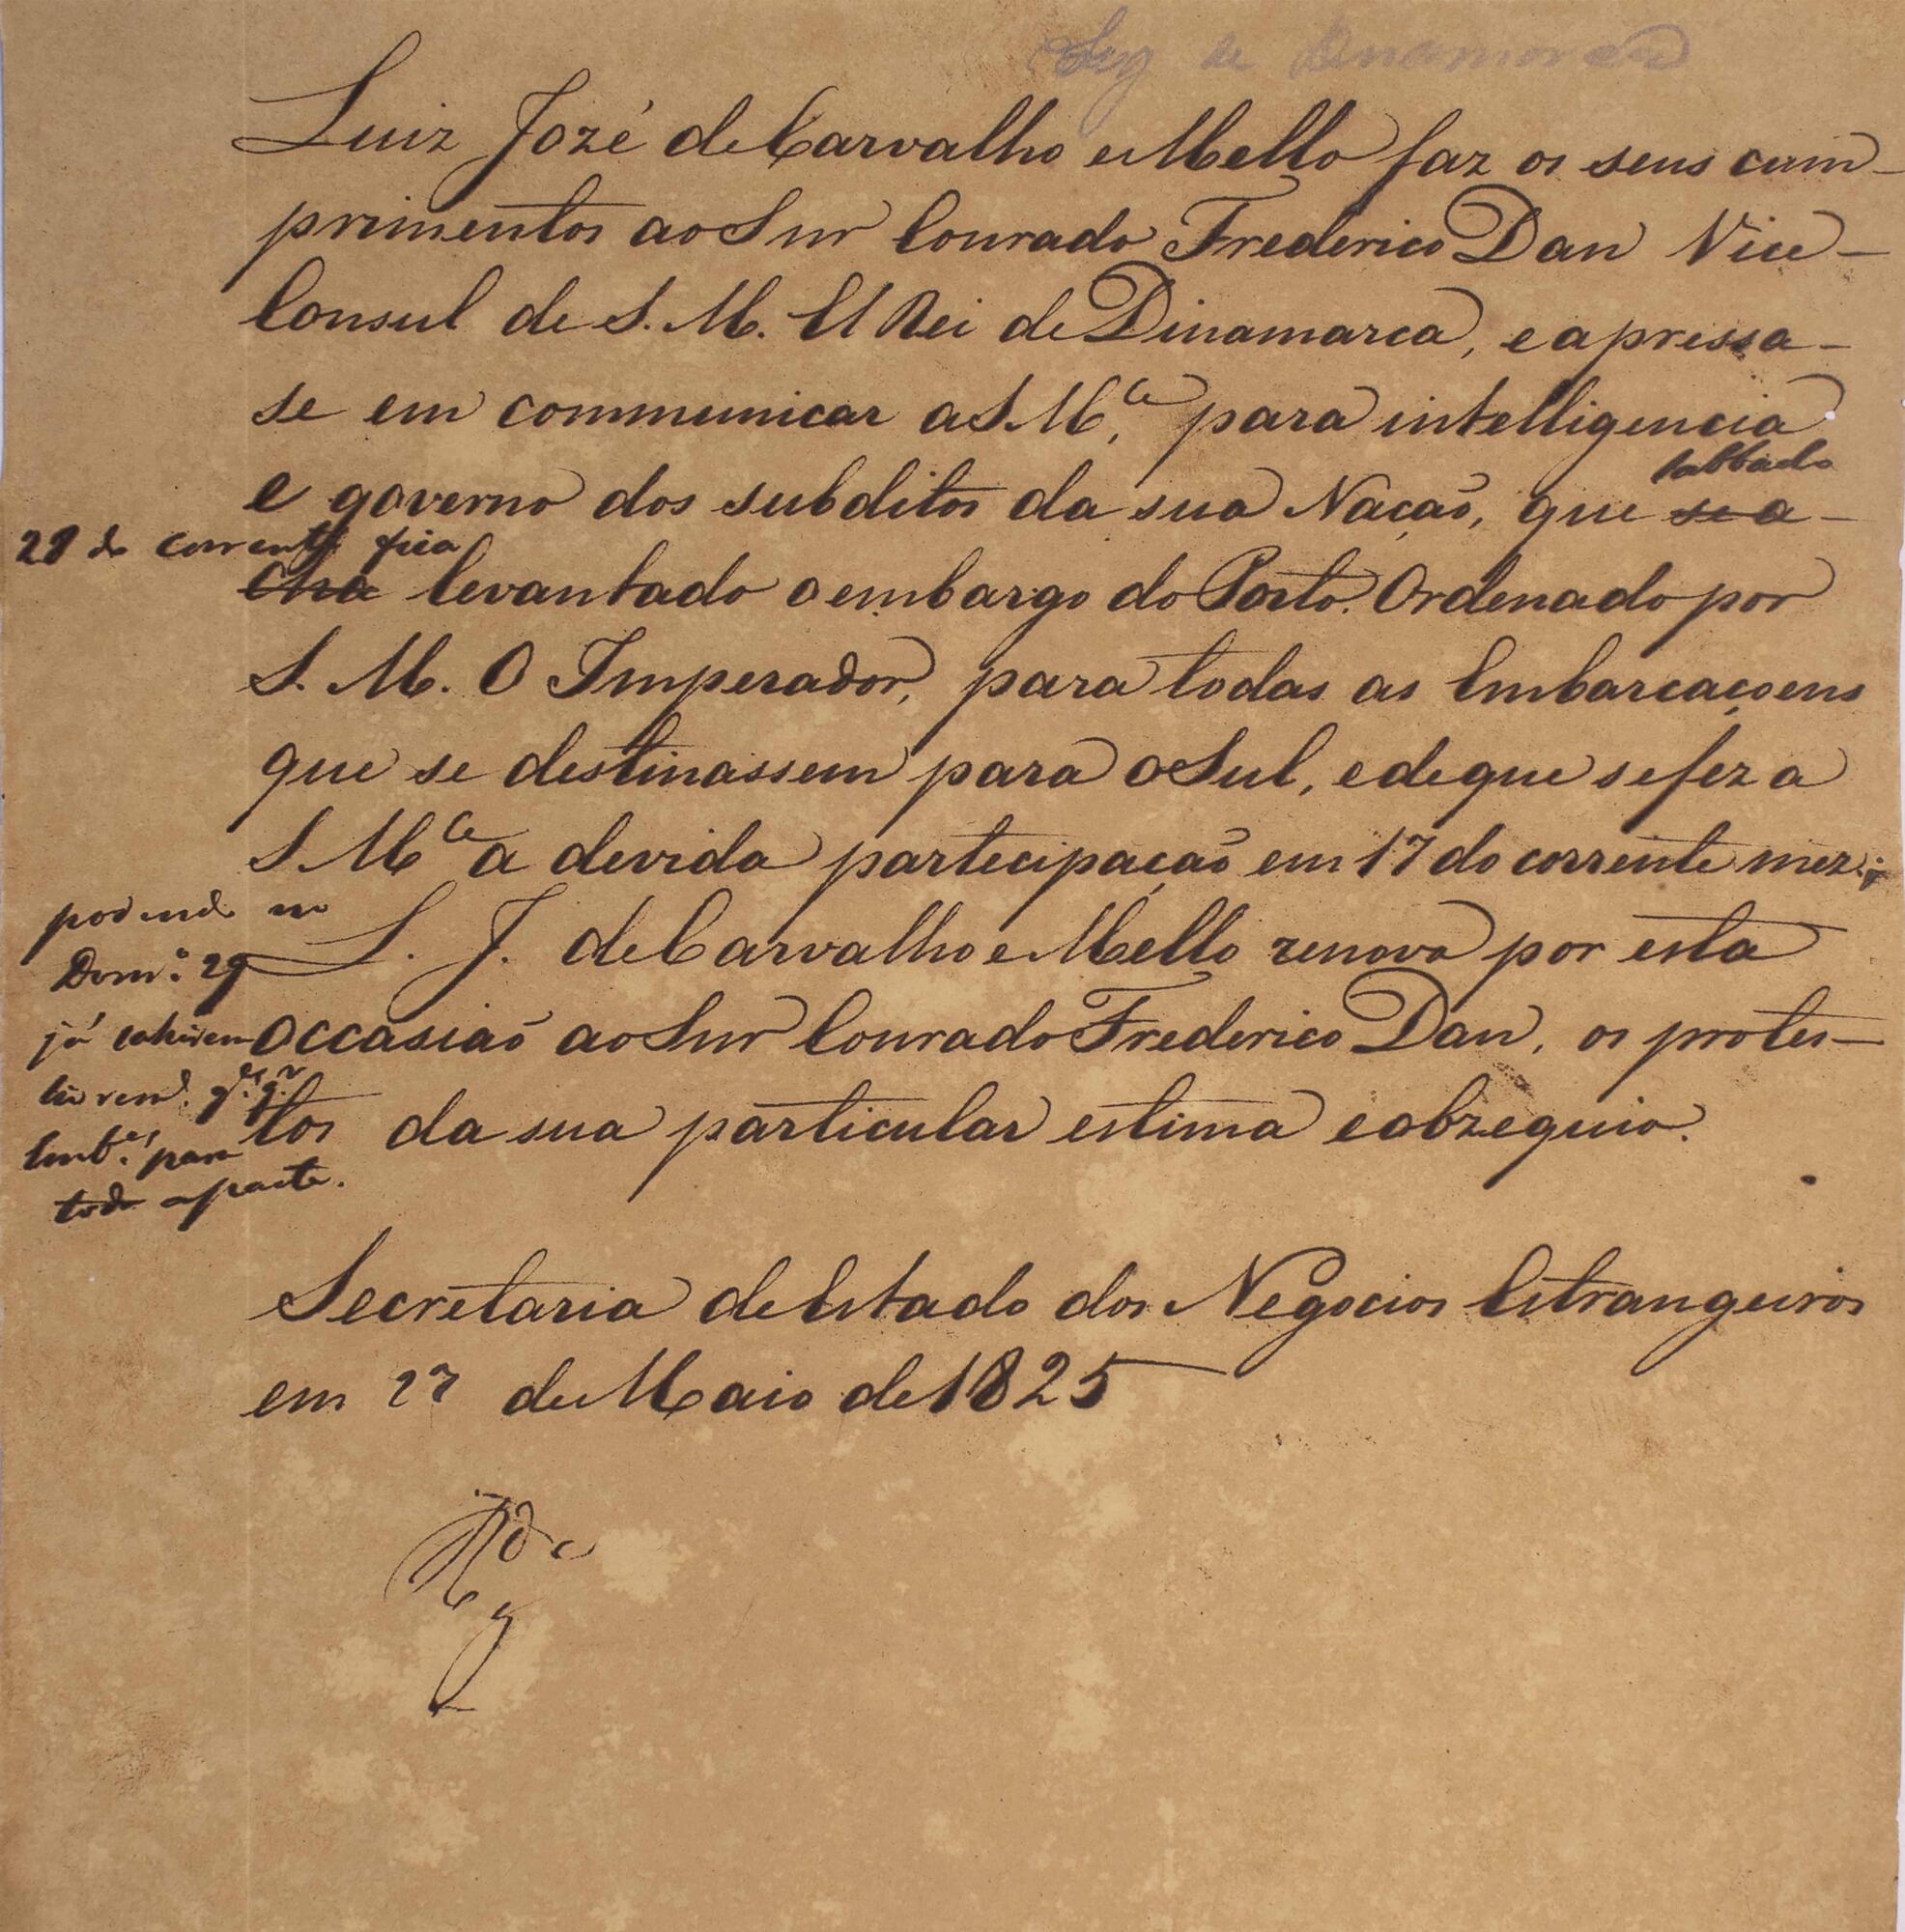 Leg de Dinamarca
Luiz Jozé de Carvalho e Mello faz os seus cum-
primentos ao Snr Conrado Frederico Dan Vice-
Consul de S. M. El Rei de Dinamarca, e apressa-
se em communicar a S. M.ce para intelligencia
sabbado
e governo dos subditos da sua Nação, que se a-
28 do corrente fica
cha levantado o embargo do Porto. Ordenado por
S. M. O Imperador, para todas as Embarcaçoens
que se destinassem para o Sul, e de que se fez a
S. M.ce a devida partecipação em 17 do corrente mez;
podendo no
Dom.º 29
já sahirem
livrem.e q.es q.r
Emb.es para
toda a parte.
L. J. de Carvalho e Mello renova por esta
occasião ao Snr Conrado Frederico Dan, os protes-
tos da sua particular estima e obzequio.
Secretaria de Estado dos Negocios Estrangeiros
em 27 de Maio de 1825